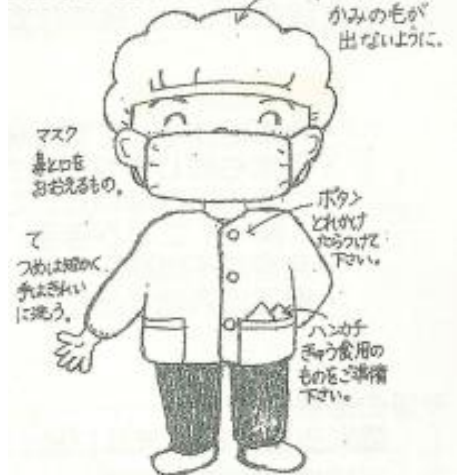 かみの毛が
出ないように。
マスク
鼻と口を
おおえるもの。
ボタン
とれかけ
たらつけて
下さい。
て
つめは短かく
手はきれい
に洗う。
ハンカチ
きゅう食用の
ものをご準備
下さい。